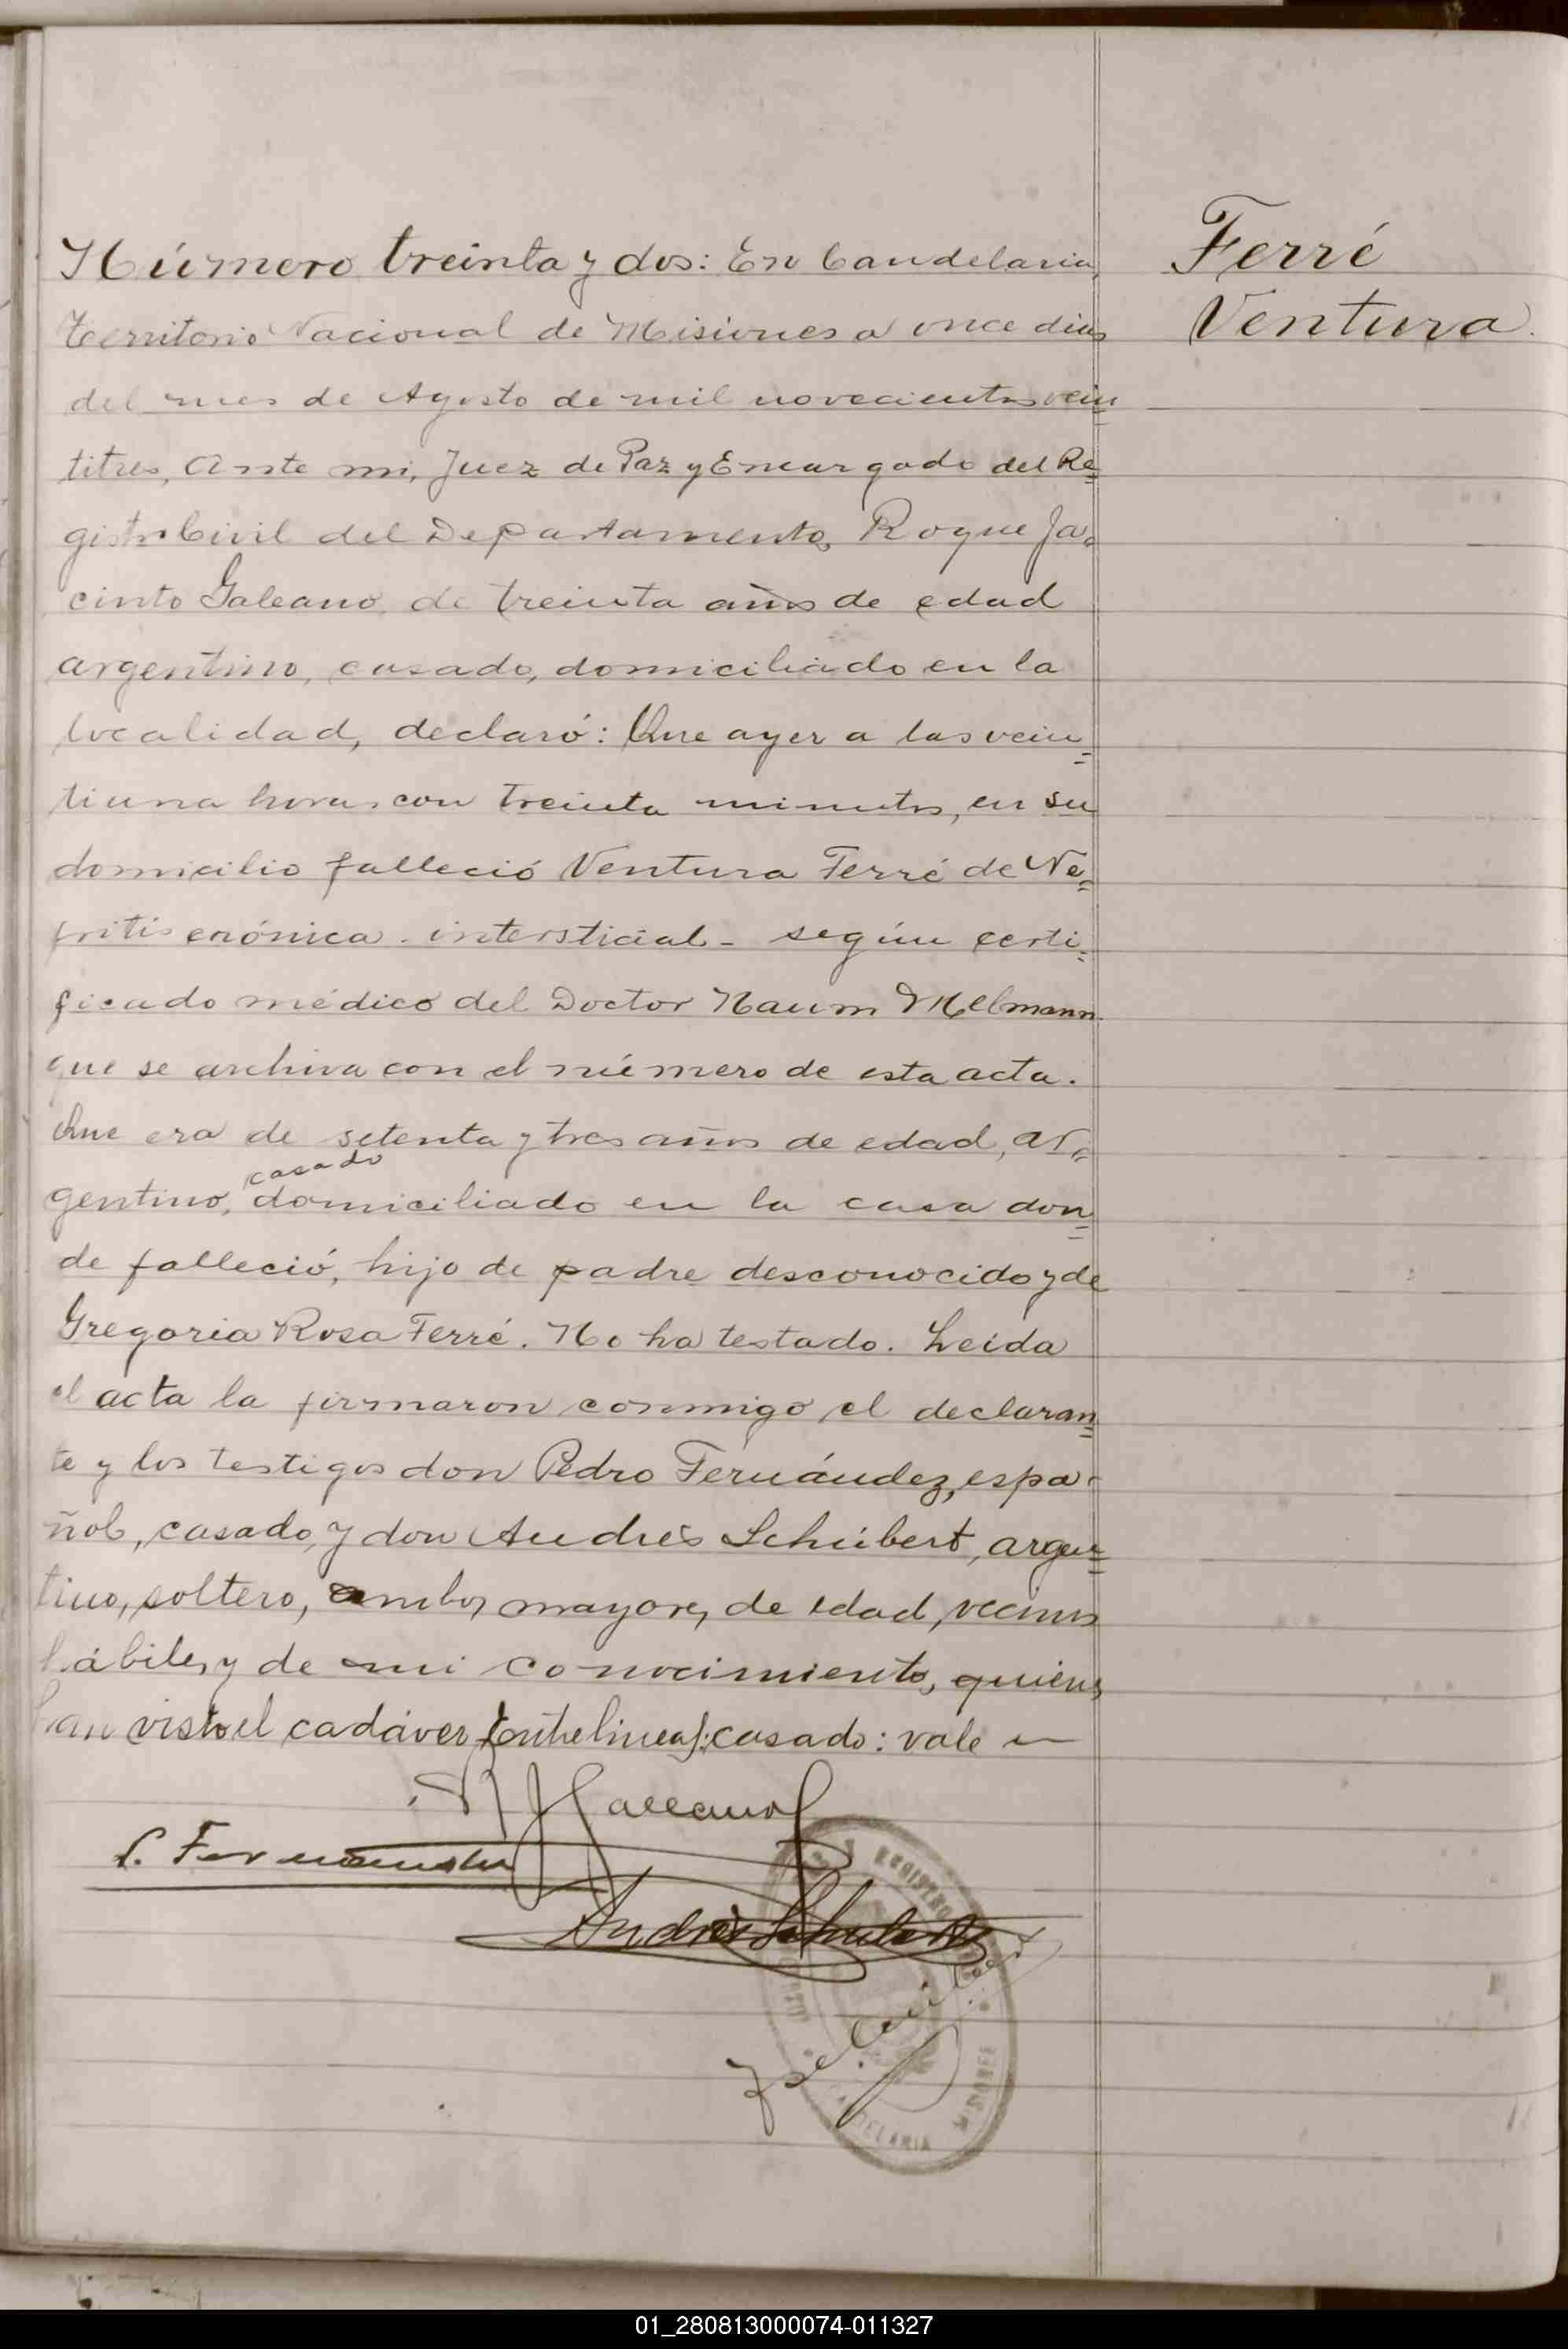 Número treinta y dos: En Candelaria,
Territorio Nacional de Misiones a once dias
del mes de Agosto de mil novecientos vein=
titres, Ante mi, Juez de Paz y Encargado del Re=
gistro Civil del Departamento, Roque Ja=
cinto Galeano, de treinta años de edad
argentino, casado, domiciliado en la
localidad, declaró: Que ayer a las vein=
tiuna horas con treinta minutos, en su
domicilio falleció Ventura Ferré de Ne=
fritis crónica - intersticial - según certi=
ficado médico del Doctor Naum
que se archiva con el número de esta acta.
Que era de setenta y tres años de edad, ar=
casado
gentino, domiciliado en la casa don=
de falleció, hijo de padre desconocido y de
Gregoria Rosa Ferré. No ha testado. Leida
el acta la firmaron conmigo el declaran=
te y los testigos don Pedro Fernández, espa=
ñol, casado, y don Andrés Schúbert, argen=
tino, soltero, ambos mayores de edad, vecinos
hábiles y de mi conocimiento, quienes
han visto el cadáver (entrelineas): casado: vale
Ferré
Ventura.
R J Galeano
P. Fernandez
Andrés Schubert
REGISTRO
MISIONES
01_280813000074-011327